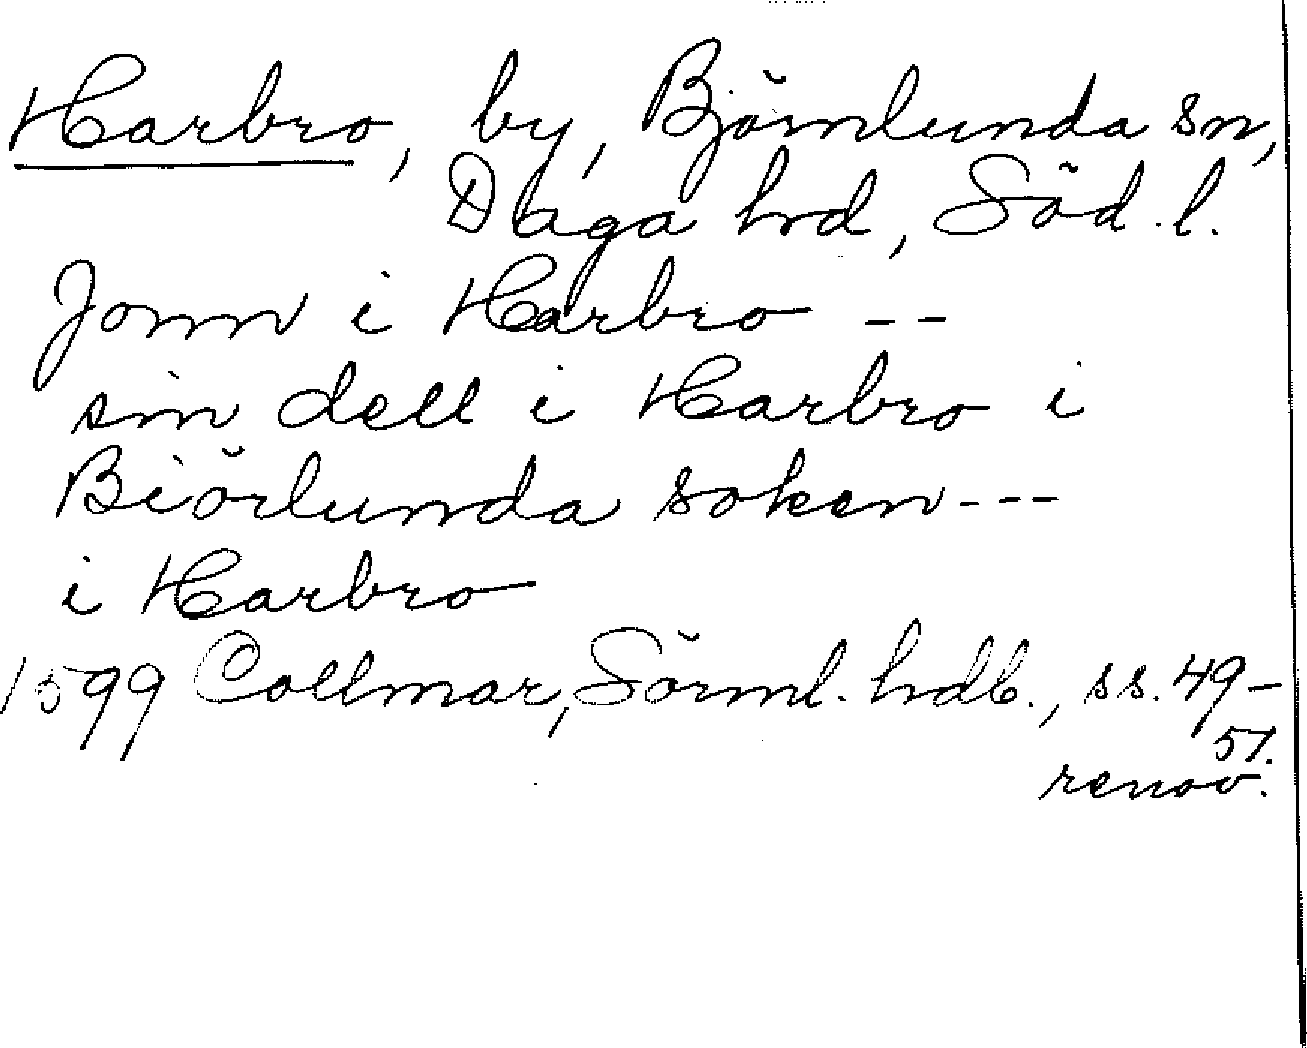 Harbro, by, Björnlunda sn,
Daga hd, Söd. l.
Jonn i Harbro --
sin dell i Harbro i
Biörlunda soken---
i Harbro
1599 Collmar, Sörml. hdl., ss. 49-
51.
renov.